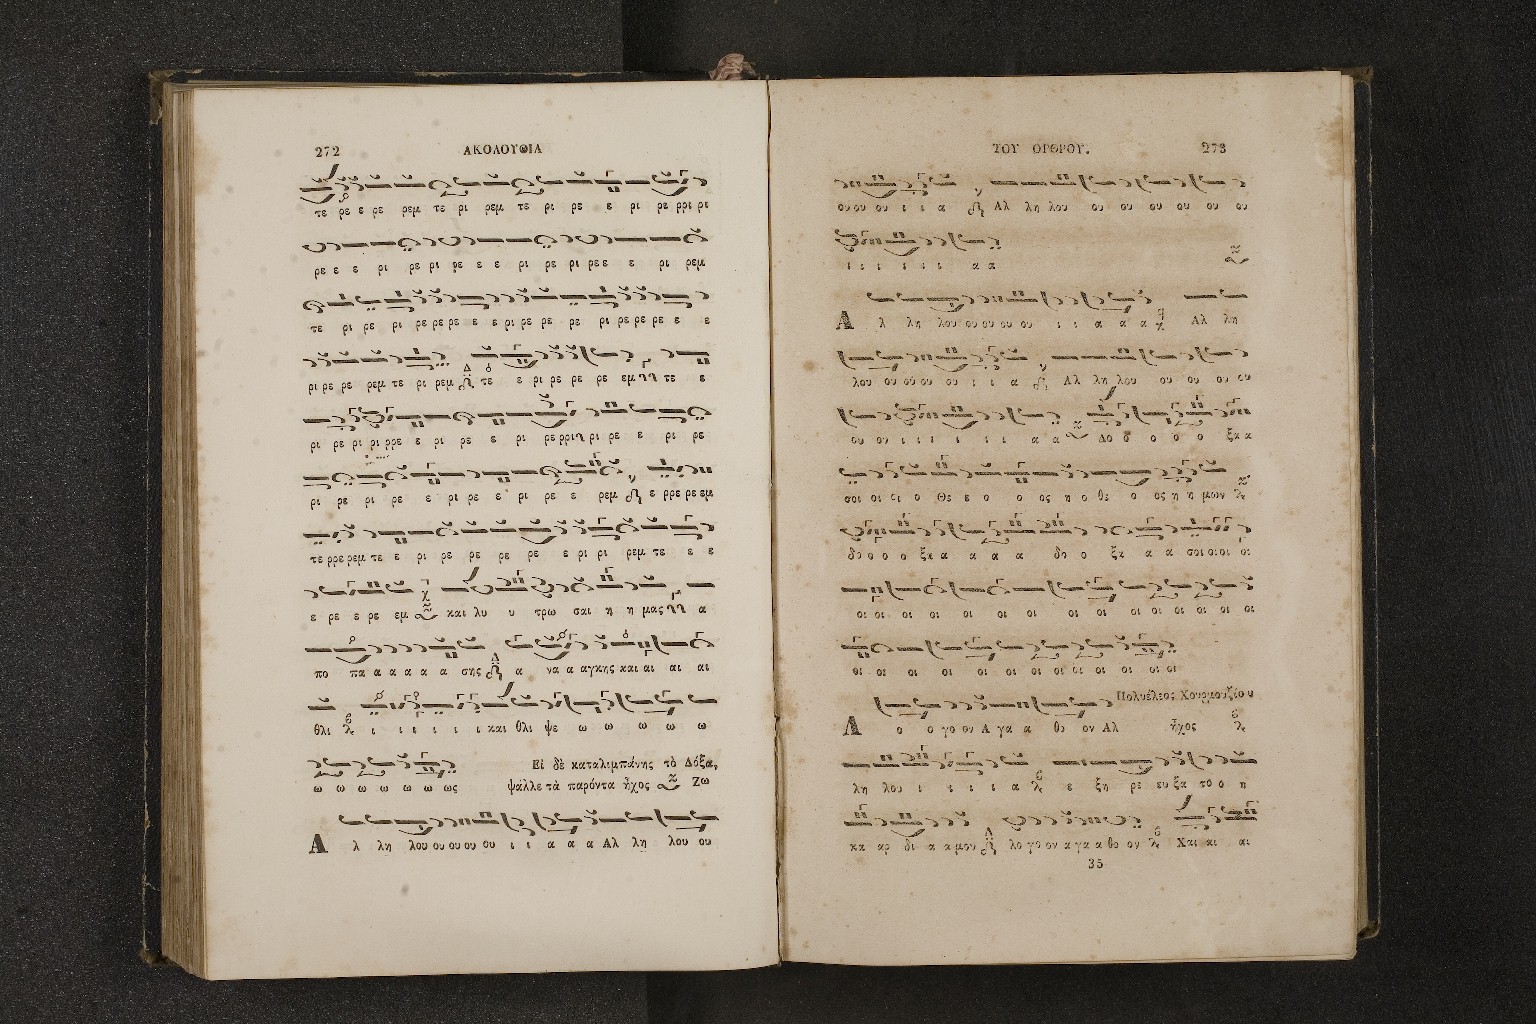 272 ΑΚΟΛΟΥΘΙΑ
τε ρε ε ρε ρεμ τε ρι ρεμ τε ρι ρε ε ρι ρε ρρι ρι
ρε ε ε ρι ρε ρι ρε ε ε ρι ρε ρι ρε ε ε ρι ρεμ
τε ρι ρε ρι ρε ρε ρε ε ε ρι ρε ρε ρε ρι ρε ρε ρε ε ε
ρι ρε ρε ρεμ τε ρι ρεμ τε ε ρι ρε ρε ρε εμ τε ε
ρι ρε ρι ρι ρρε ε ρι ρε ε ρι ρε ρρι ρι ρε ε ρι ρε
ρι ρε ρι ρε ε ρι ρε ε ρι ρε ε ρεμ ε ρρε ρε εμ
τε ρρε ρεμ τε ε ρι ρε ρε ρε ρε ε ρι ρι ρεμ τε ε ε
ε ρε ε ρε εμ και λυ υ τρω σαι η η μας α
πο πα α α α α α σης α να α αγκης και αι αι αι
θλι ι ι ι ι ι ι και θλι ψε ω ω ω ω ω
Εἰ δὲ καταλιμπάνης τὸ Δόξα,
ω ω ω ω ω ω ως ψάλλε τὰ παρόντα ἦχος Ζω
Α λ λη λου ου ου ου ου ι ι α α α Αλ λη λου ου
ΤΟΥ ΟΡΘΡΟΥ. 273
ου ου ου ι ι α Αλ λη λου ου ου ου ου ου ου
ι ι ι ι ι ι α α
Α λ λη λου ου ου ου ου ι ι α α α Αλ λη
λου ου ου ου ου ι ι α Αλ λη λου ου ου ου ου
ου ου ι ι ι ι ι ι α α Δο ο ο ο ο ξα α
σοι οι οι ο Θε ε ο ο ος η ο θε ο ος η η μων
δο ο ο ο ξα α α α α δο ο ξα α α σοι οι οι οι
οι οι οι οι οι οι οι οι οι οι οι οι οι οι
οι οι οι οι οι οι οι οι οι οι οι οι οι
Πολυέλεος Χουρμουζίου
Λ ο ο γο ον Α γα α θο ον Αλ ἦχος
λη λου ι ι ι ι α ε ξη ρε ευ ξα το ο η
κα αρ δι α α μου λο γο ον α γα α θο ον Χαι αι αι
35